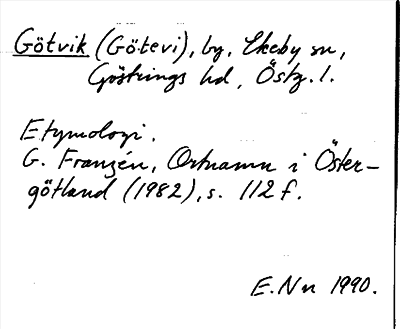 Götvik (Götevi), by, Ekeby sn,
Göstrings hd, Östg. l.
Etymologi.
G. Franzén, Ortnamn i Öster-
götland (1982), s. 112 f.
E. Nn 1990.